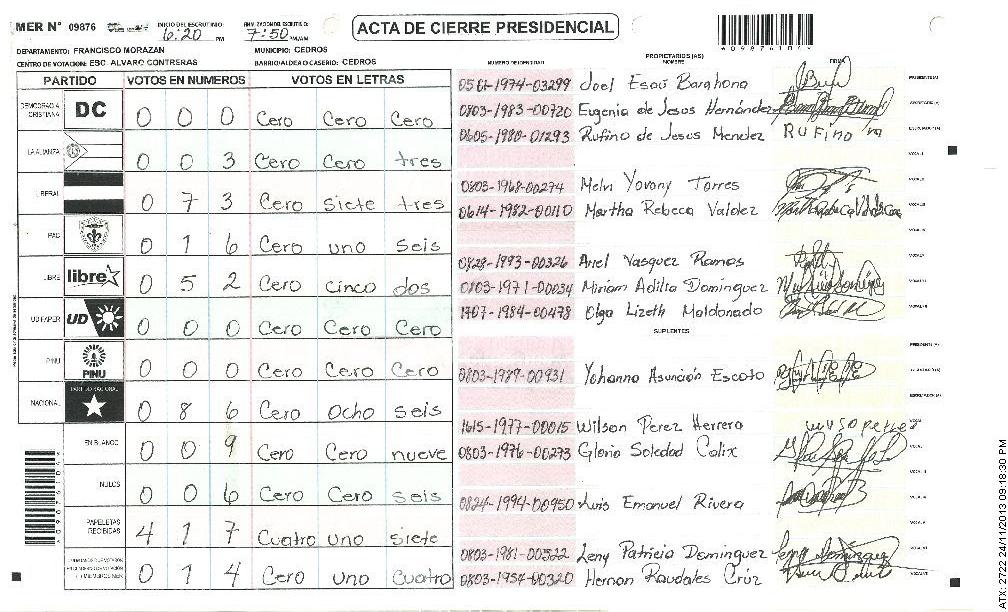 MER N° 09876 INICIO DEL ESCRUTINIO: 6:20 PM 7:50 PM/AM
ACTA DE CIERRE PRESIDENCIAL
DEPARTAMENTO: FRANCISCO MORAZAN MUNICIPIO: CEDROS
CENTRO DE VOTACION: ESC. ALVARO CONTRERAS BARRIO/ALDEA O CASERIO: CEDROS
PARTIDO VOTOS EN NUMEROS VOTOS EN LETRAS
DEMOCRACIA CRISTIANA DC 0 0 0 Cero Cero Cero
LA ALIANZA 0 0 3 Cero Cero tres
LIBERAL 0 7 3 Cero Siete tres
PAC 0 1 6 Cero uno seis
LIBRE libre 0 5 2 Cero cinco dos
UD FAPER UD 0 0 0 Cero Cero Cero
PINU PINU 0 0 0 Cero Cero Cero
NACIONAL PARTIDO NACIONAL 0 8 6 Cero Ocho seis
EN BLANCO 0 0 9 Cero Cero nueve
NULOS 0 0 6 Cero Cero seis
PAPELETAS RECIBIDAS 4 1 7 Cuatro uno siete
0 1 4 Cero uno cuatro
NUMERO DE IDENTIDAD PROPIETARIOS (AS) NOMBRE FIRMA
0501-1974-03299 Joel Esaú Barahona
0803-1983-00720 Eugenia de Jesus Hernández
0605-1980-01293 Rufino de Jesus Mendez RUFINO
0803-1968-00274 Melvi Yovany Torres
0614-1982-00110 Martha Rebeca Valdez
0828-1993-00326 Ariel Vasquez Ramos
0803-1971-00034 Miriam Adilia Dominguez
1707-1984-00478 Olga Lizeth Maldonado
SUPLENTES
0803-1989-00931 Yohanna Asunción Escoto
1615-1977-00015 Wilson Perez Herrera
0803-1976-00273 Gloria Soledad Calix
0824-1994-00950 Luis Emanuel Rivera
0803-1981-00522 Leny Patricia Dominguez
0803-1954-00320 Hernan Raudales Crúz
ATX: 2722 24/11/2013 09:18:30 PM